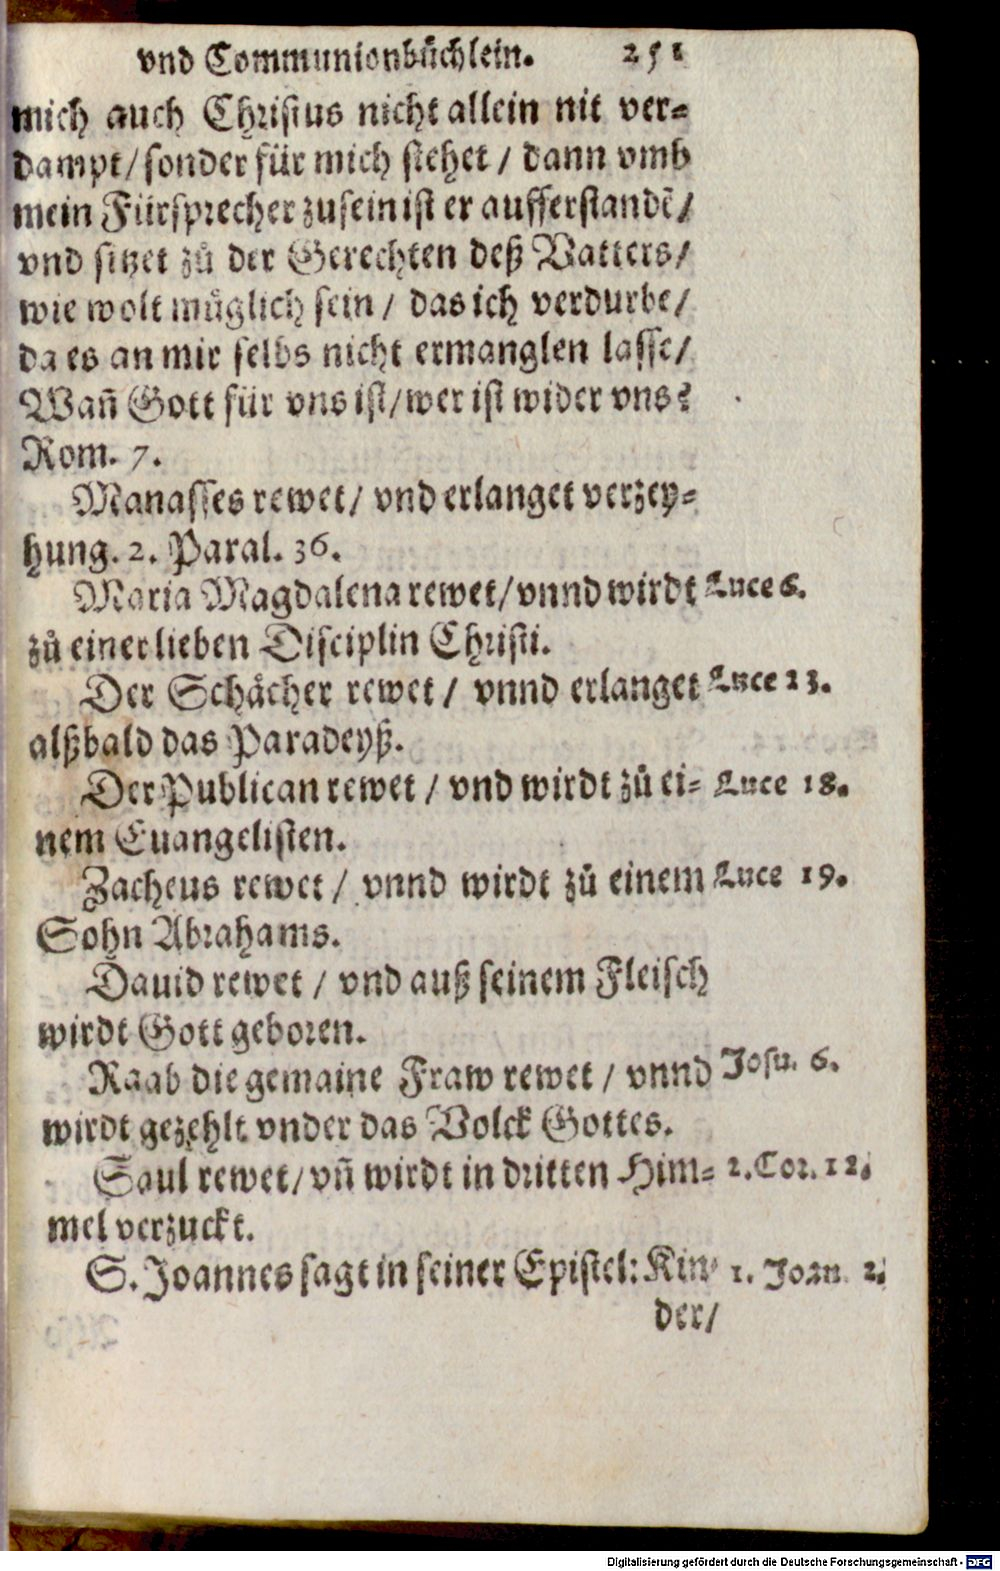 vnd Communionbüchlein. 251
mich auch Christus nicht allein nit ver-
dampt/ sonder für mich stehet / dann vmb
mein Fürsprecher zusein ist er aufferstandẽ/
vnd sitzet zů der Gerechten deß Vatters/
wie wolt müglich sein / das ich verdurbe/
da es an mir selbs nicht ermanglen lasse/
Wañ Gott für vns ist/ wer ist wider vns?
Rom. 7.
Manasses rewet/ vnd erlanget verzey-
hung. 2. Paral. 36.
Maria Magdalena rewet/ vnnd wirdt Luce 6.
zů einer lieben Disciplin Christi.
Der Schächer rewet / vnnd erlanget Luce 23.
alßbald das Paradeyß.
Der Publican rewet / vnd wirdt zů ei- Luce 18.
nem Euangelisten.
Zacheus rewet / vnnd wirdt zů einem Luce 19.
Sohn Abrahams.
Dauid rewet / vnd auß seinem Fleisch
wirdt Gott geboren.
Raab die gemaine Fraw rewet / vnnd Josu. 6.
wirdt gezehlt vnder das Volck Gottes.
Saul rewet/ vñ wirdt in dritten Him- 2. Cor. 12.
mel verzuckt.
S. Joannes sagt in seiner Epistel: Kin- 1. Joan. 2.
der/
Digitalisierung gefördert durch die Deutsche Forschungsgemeinschaft - DFG